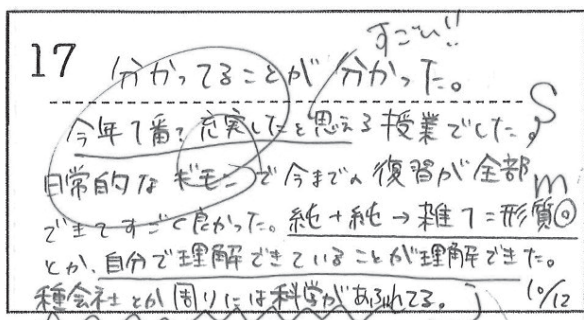 すごい!!
17 分かってることが分かった。
今年1番?充実したと思える授業でした。 S
日常的なギモンで今までの復習が全部 m
できてすごく良かった。純+純→雑1=形質◎
とか、自分で理解できていることが理解できた。
種会社とか周りには科学があふれてる。 10/12